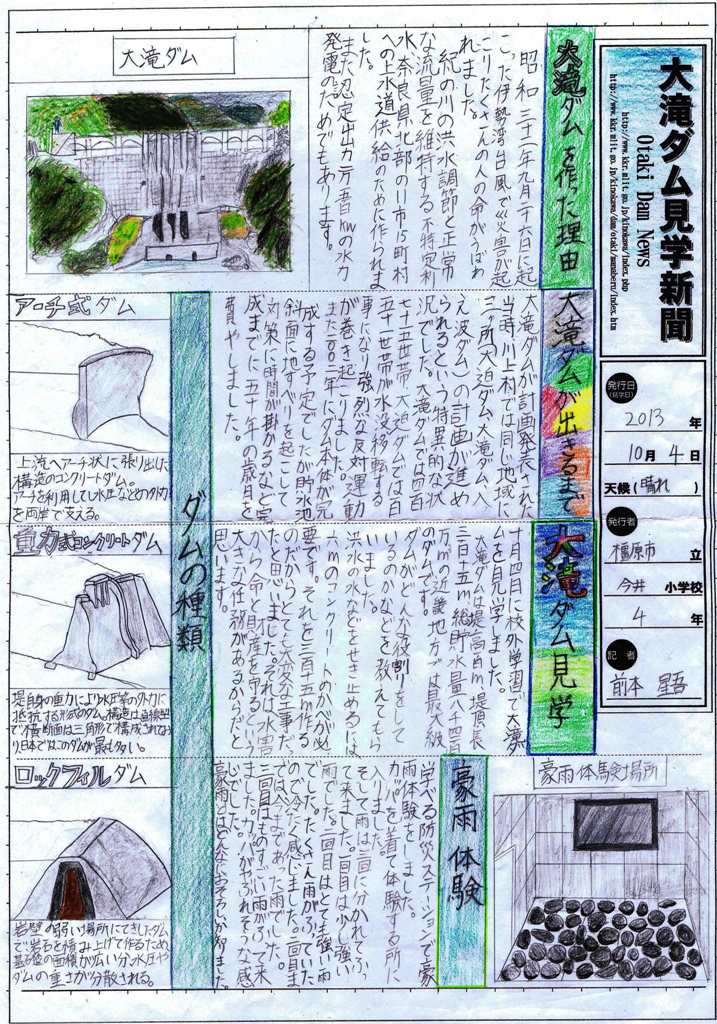 大滝ダム見学新聞
Otaki Dam News
http://www.kkr.mlit.go.jp/kinokawa/index.php
発行日
(見学日)
2013 年
10月 4日
天候(晴れ)
発行者
橿原市 立
今井 小学校
4 年
記者
前本 星吾
大滝ダムを作った理由
昭和三十二年九月二十六日に起
こった伊勢湾台風で災害が起
こりたくさんの人の命がうばわ
れました。
紀の川の洪水調節と正常
な流量を維持する不特定利
水、奈良県北部の11市15町村
への上水道供給のために作られま
した。
また認定出力
kwの水力
発電のためでもあります。
大滝ダム
大滝ダムが出きるまで
大滝ダムが計画発表された
当時、川上村では同じ地域に
三ヶ所(大迫ダム、大滝ダム、入
え波ダム)の計画が進め
られるという特異的な状
況でした。大滝ダムでは四百
七十五世帯、大迫ダムでは百
五十一世帯が水没移転する
事になり強烈な反対運動
が巻き起こりました。
また二〇〇二年にダム本体が完
成する予定でしたが貯水池
斜面に地すべりを起こして
対策に時間が掛かるなど完
成までに五十年の歳月を
費やしました。
大滝ダム見学
十月四日に校外学習で大滝ダ
ムを見学しました。
大滝ダムは堤高百m、堤頂長
三百十五m、総貯水量八千四百
万m³の近畿地方では最大級
のダムです。
ダムがどんな役割りをして
いるのかなどを教えてもら
いました。
洪水の水などをせき止めるには
六mのコンクリートのかべが必
要です。それを三百十五m作る
のだからとても大変な工事だっ
たと思いました。それは水害
から命と財産を守るという
大きな任務があるからだと
思います。
ダムの種類
アーチ式ダム
上流へアーチ状に張り出した
構造のコンクリートダム。
アーチを利用して水圧などの外力
を両岸で支える。
重力式コンクリートダム
堤自身の重力により水圧等の外力に
抵抗する形式のダム。構造は直線型
で横断面は三角形で構成されてお
り日本ではこのダムが最も多い。
ロックフィルダム
岩壁の弱い場所にてきしたダム
で岩石を積み上げて作るため、
基そ位の面積が広い分、水圧や
ダムの重さが分散される。
豪雨体験
学べる防災ステーションで豪
雨体験をしました。
カッパを着て体験する所に
入りました。
そして雨は三回に分かれてふっ
て来ました。一回目は少し強い
雨でした。二回目はとても強い雨
でした。たくさん雨がふっていた
ので冷たく感じました。二回目ま
では今まであった雨でした。
三回目はものすごい雨がふって来
ました。カッパがやぶれそうな感
じでした。
豪雨とはどんなにおそろしいか知りました。
豪雨体験場所